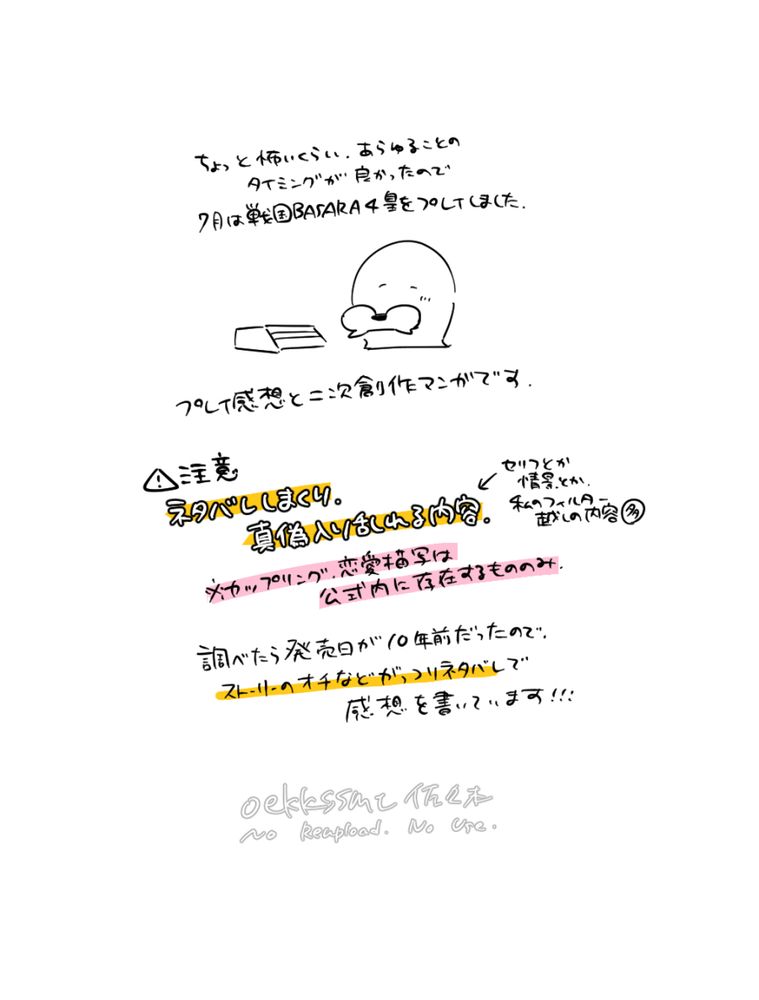 ちょっと怖いくらい、あらゆることの
タイミングが良かったので
7月は戦国BASARA4皇をプレイしました.
プレイ感想と二次創作マンガです.
⚠注意
ネタバレしまくり。
真偽入り乱れる内容。
セリフとか
情景とか、
私のフィルター
越しの内容多
※カップリング、恋愛描写は
公式内に存在するもののみ.
調べたら発売日が10年前だったので、
ストーリーのオチなどがっつりネタバレで
感想を書いています!!!
oekkssmt 佐々木
No Reupload. No Use.